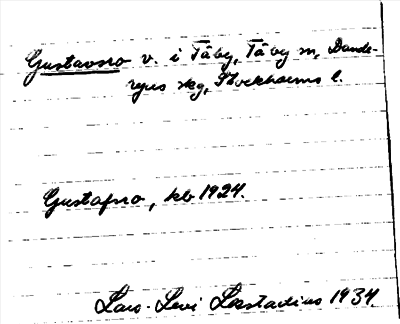 Gustavsro v. i Täby, Täby sn, Dande-
ryds skg, Stockholms l.
Gustafsro, kb 1924.
Lars-Levi Læstadius 1934